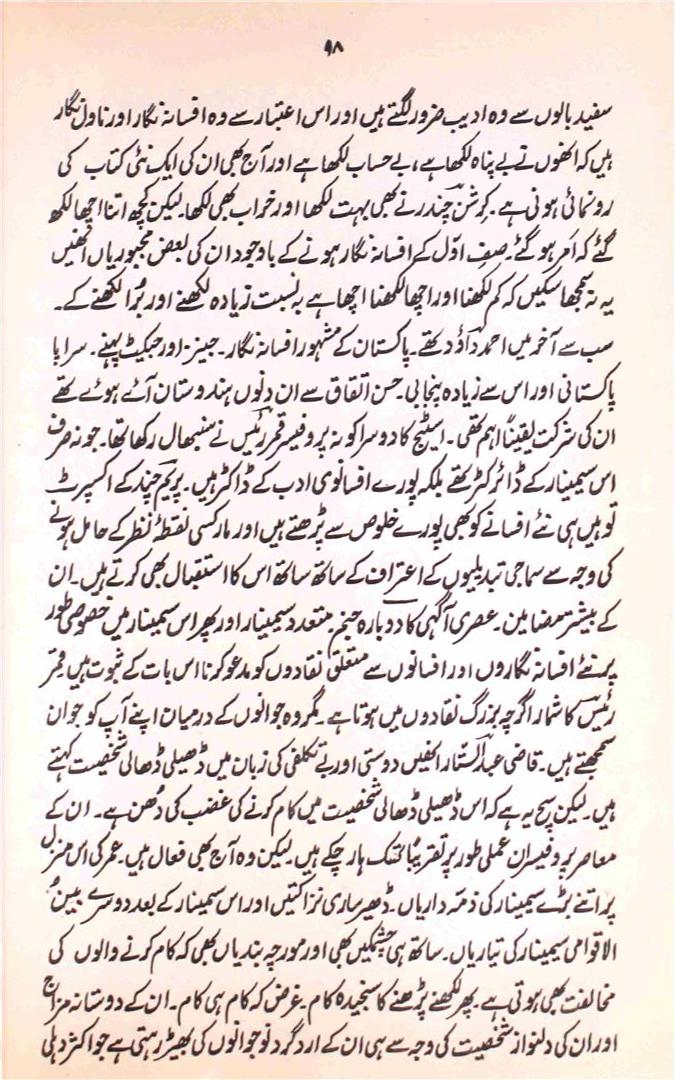 ۹۸
سفید بالوں سے وہ ادیب ضرور لگتے ہیں اور اس اعتبار سے وہ افسانہ نگار اور ناول نگار
ہیں کہ انھوں نے بے پناہ لکھا ہے، بے حساب لکھا ہے اور آج بھی ان کی ایک نئی کتاب کی
رونمائی ہونی ہے۔ کرشن چندر نے بھی بہت لکھا اور خراب بھی لکھا۔ لیکن کچھ اتنا اچھا لکھ
گئے کہ امر ہو گئے۔ صفِ اوّل کے افسانہ نگار ہونے کے باوجود ان کی بعض مجبوریاں انھیں
یہ نہ سمجھا سکیں کہ کم لکھنا اور اچھا لکھنا اچھا ہے بہ نسبت زیادہ لکھنے اور بُرا لکھنے کے۔
سب سے آخر میں احمد داؤد تھے۔ پاکستان کے مشہور افسانہ نگار۔ جینز اور جیکٹ پہنے۔ سراپا
پاکستانی اور اس سے زیادہ پنجابی۔ حسن اتفاق سے ان دنوں ہندوستان آئے ہوئے تھے
ان کی شرکت یقیناً اہم تھی۔ اسٹیج کا دوسرا کونہ پروفیسر قمر رئیس نے سنبھال رکھا تھا۔ جو نہ صرف
اس سیمینار کے ڈائرکٹر تھے بلکہ پورے افسانوی ادب کے ڈاکٹر ہیں۔ پریم چند کے اکسپرٹ
تو ہیں ہی نئے افسانے کو بھی پورے خلوص سے پڑھتے ہیں اور مارکسی نقطۂ نظر کے حامل ہونے
کی وجہ سے سماجی تبدیلیوں کے اعتراف کے ساتھ ساتھ اس کا استقبال بھی کرتے ہیں۔ ان
کے بیشتر مضامین۔ عصری آگہی کا دوبارہ جنم۔ متعدد سیمینار اور پھر اس سیمینار میں خصوصی طور
پر نئے افسانہ نگاروں اور افسانوں سے متعلق نقادوں کو مدعو کرنا اس بات کے ثبوت ہیں قمر
رئیس کا شمار اگرچہ بزرگ نقادوں میں ہوتا ہے۔ مگر وہ جوانوں کے درمیان اپنے آپ کو جوان
سمجھتے ہیں۔ قاضی عبدالستار انھیں دوستی اور بے تکلفی کی زبان میں ڈھیلی ڈھالی شخصیت کہتے
ہیں۔ لیکن سچ یہ ہے کہ اس ڈھیلی ڈھالی شخصیت میں کام کرنے کی غضب کی دُھن ہے۔ ان کے
معاصر پروفیسران عملی طور پر تقریباً تھک ہار چکے ہیں۔ لیکن وہ آج بھی فعال ہیں۔ عمر کی اس منزل
پر اتنے بڑے سیمینار کی ذمّہ داریاں۔ ڈھیر ساری نزاکتیں اور اس سیمینار کے بعد دوسرے بین
الاقوامی سیمینار کی تیاریاں۔ ساتھ ہی چشمکیں بھی اور مورچہ بندیاں بھی کہ کام کرنے والوں کی
مخالفت بھی ہوتی ہے۔ پھر لکھنے پڑھنے کا سنجیدہ کام۔ غرض کہ کام ہی کام۔ ان کے دوستانہ مزاج
اور ان کی دلنواز شخصیت کی وجہ سے ہی ان کے اردگرد نوجوانوں کی بھیڑ رہتی ہے جو اکثر دہلی